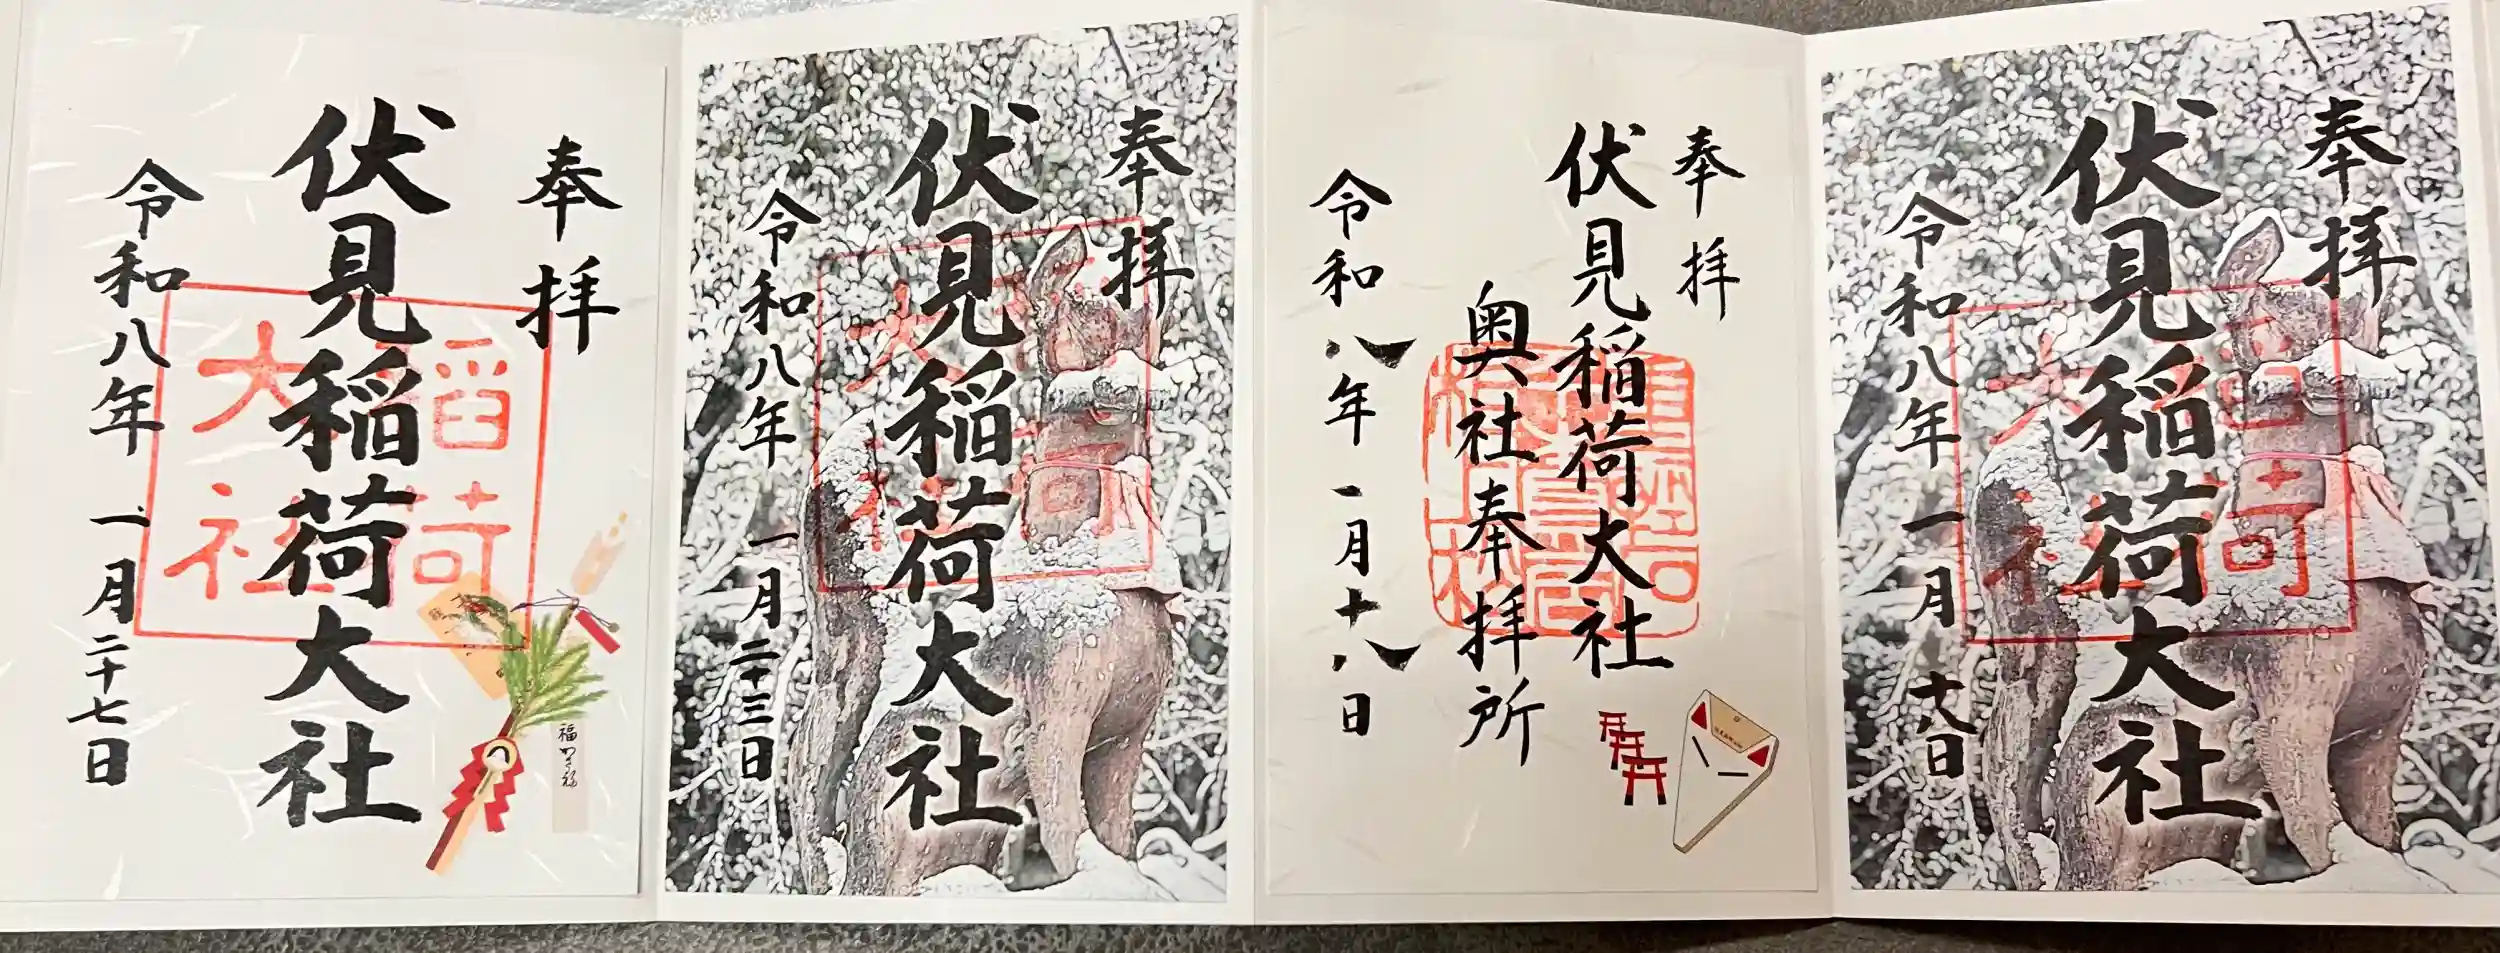 奉拝
伏見稲荷大社
令和八年一月十八日
奉拝
伏見稲荷大社
奥社奉拝所
令和八年一月十八日
奉拝
伏見稲荷大社
令和八年一月二十三日
奉拝
伏見稲荷大社
令和八年一月二十七日
稲荷
大社